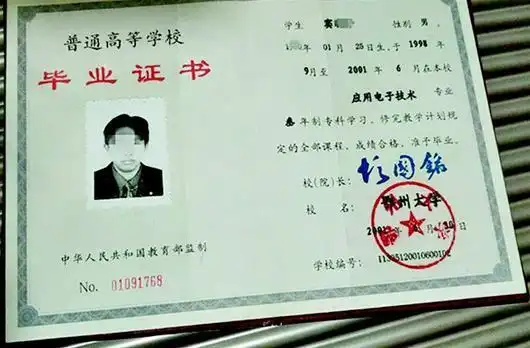 普通高等学校
毕业证书
中华人民共和国教育部监制
No. 01091768
学生 窦 性别 男,
年 01 月 25日生,于 1998
年 9月至 2001 年 6 月在本校
应用电子技术 专业
叁 年制专科学习,修完教学计划规
定的全部课程,成绩合格,准予毕业。
校(院)长:
校 名: 鄂州大学
2001 年 月 30 日
学校编号: 11335120010600102